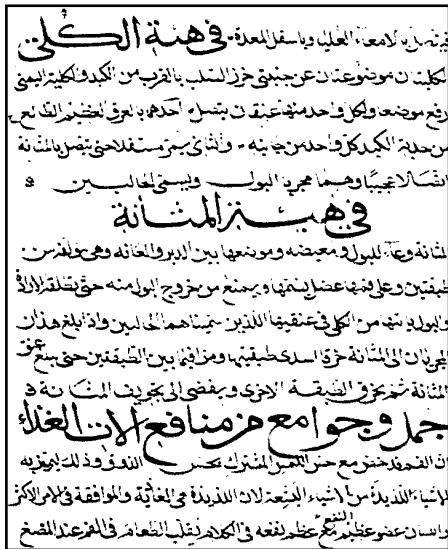 فيتصل بالامعاء العليا وباسفل المعدة في هيئة الكلى
الكليتان موضوعتان عن جنبتي خرز الصلب بالقرب من الكبد والكلية اليمنى
ارفع موضعا ولكل واحد منهما عنقان يتصل احدهما بالعرق العظيم الطالع
من حدبة الكبد كل واحد من جانبه والثاني يمر متسفلا حتى يتصل بالمثانة
اتصالا عجيبا وهما مجريا البول ويسمى الحالبين
في هيئة المثانة
المثانة وعاء للبول ومغيضه وموضعها بين الدبر والعانة وهي
طبقتين وعلى فمها عضل يضمها ويمنع من خروج البول منه حتى تطلقه الارادة
والبول ياتيها من الكلى في عنقيها اللذين سميناهما الحالبين واذا بلغ هذان
المجريان الى المثانة خرقا احدى طبقتيها ومرا فيما بين الطبقتين حتى يبلغ عنق
المثانة ثم يخرق الطبقة الاخرى ويفضي الى تجويف المثانة
جمل وجوامع من منافع الات الغذاء
ان الفم قد خص مع حس اللمس المشترك بحس الذوق وذلك ليميز به
الاشياء اللذيذة من الاشياء البشعة لان اللذيذة هي المغذية والموافقة في الامر الاكثر
واللسان عضو عظيم النفع مع عظم نفعه في الكلام يقلب الطعام في الفم عند المضغ